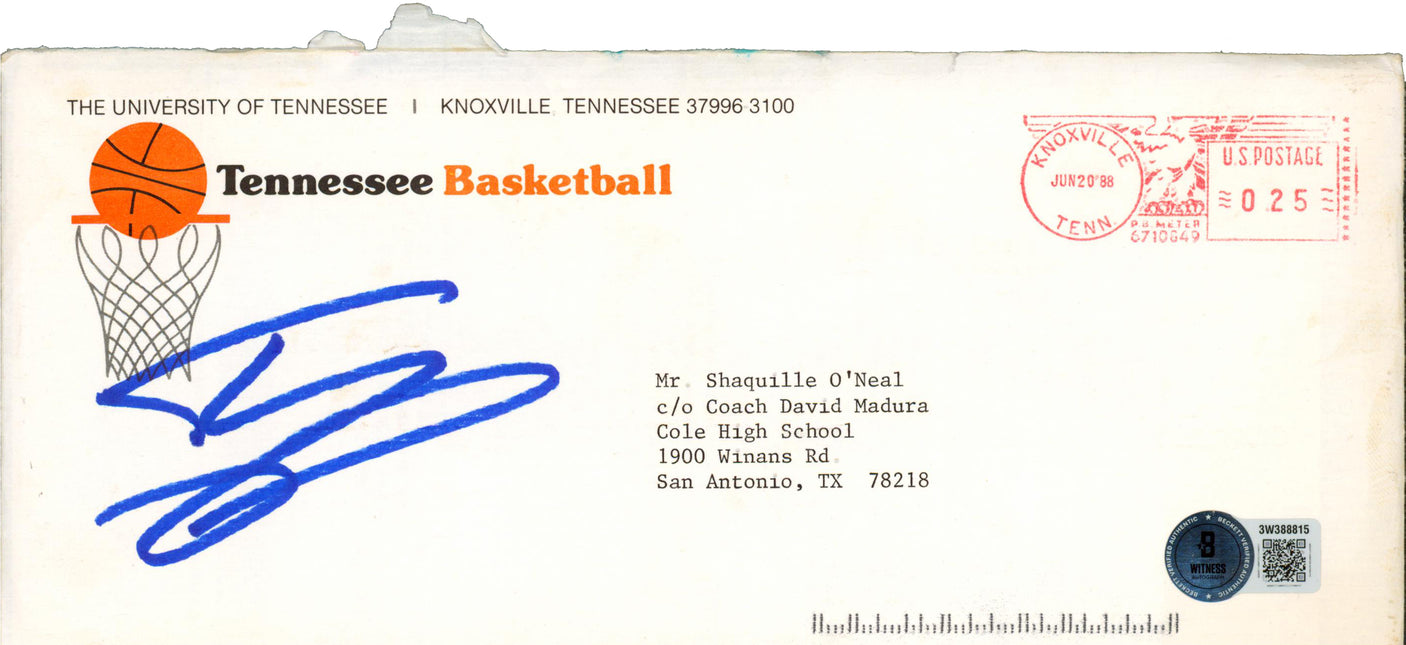 THE UNIVERSITY OF TENNESSEE | KNOXVILLE, TENNESSEE 37996-3100
Tennessee Basketball
KNOXVILLE
JUN 20 '88
TENN.
P.B. METER
6710649
U.S. POSTAGE
0.25
Mr. Shaquille O'Neal
c/o Coach David Madura
Cole High School
1900 Winans Rd.
San Antonio, TX 78218
BECKETT VERIFIED AUTHENTIC ★ BECKETT VERIFIED AUTHENTIC ★
B
WITNESS
AUTOGRAPH
3W388815